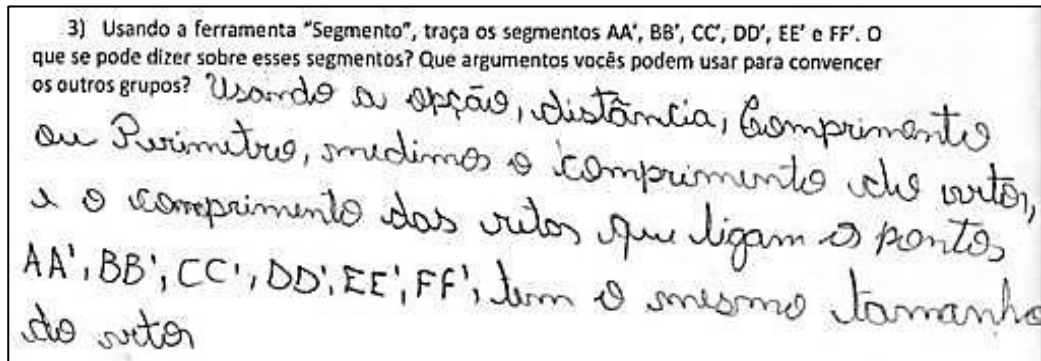 3) Usando a ferramenta "Segmento", traça os segmentos AA', BB', CC', DD', EE' e FF'. O
que se pode dizer sobre esses segmentos? Que argumentos vocês podem usar para convencer
os outros grupos? Usando a opção, distância, Comprimento
ou Perimetro, medimos o comprimento do vetor,
e o comprimento das retas que ligam os pontos
AA', BB', CC', DD', EE', FF', tem o mesmo tamanho
do vetor